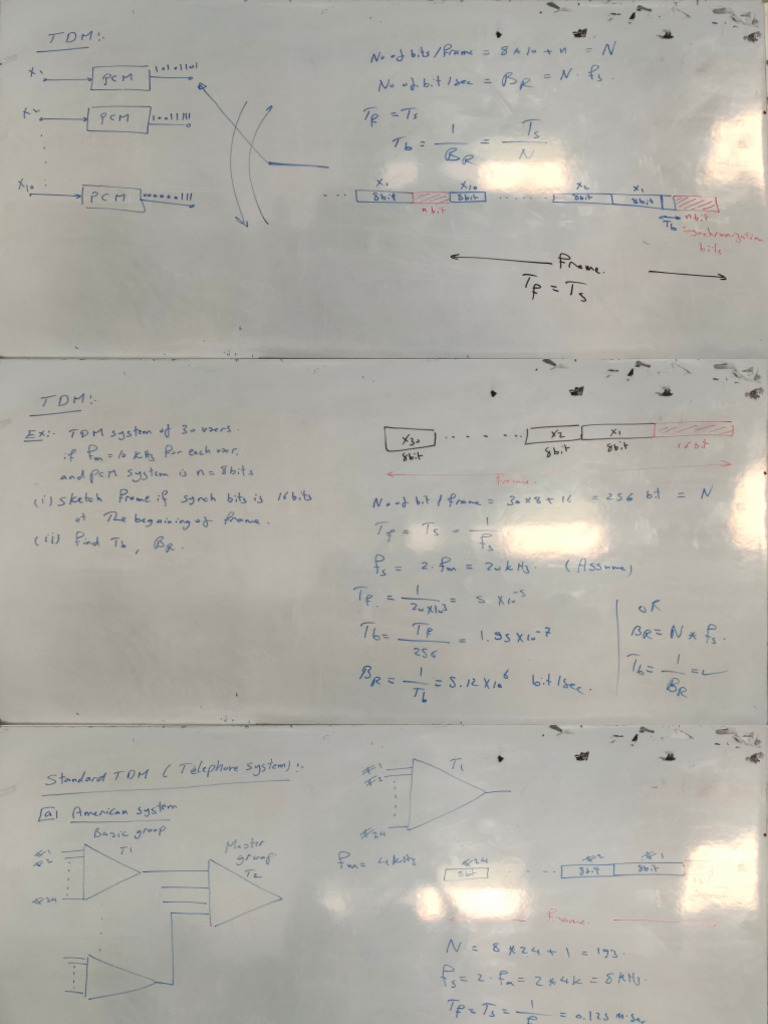 TDM:-
X1 PCM 10101101
X2 PCM 10011111
X10 PCM
No of bits/frame = 8*10+n = N
No of bit/sec = BR = N. fs.
Tf = Ts
Tb = 1/BR = Ts/N
X1 X10 X2 X1
8bit n bit 8bit ...... 8bit 8bit Tb n bit
synchronization
bits
Frame.
Tf = Ts
TDM:-
Ex:- TDM system of 30 users.
if fm = 10 kHz for each user,
and PCM system is n = 8bits
(i) sketch frame if synch bits is 16bits
at The begaining of frame.
(ii) find Tb, BR.
X30 ...... X2 X1 16bit
8bit 8bit 8bit
Frame.
No of bit/frame = 30*8+16 = 256 bit = N
Tf = Ts = 1/fs
fs = 2.fm = 20kHz. (Assume)
Tf = 1/20*10^3 = 5*10^-5
Tb = Tf/256 = 1.95*10^-7
BR = 1/Tb = 5.12*10^6 bit/sec.
OR
BR = N*fs.
Tb = 1/BR = ✓
Standard TDM (Telephone System):-
[a] American system
Basic group
Master
group
#1 T1
#2
#24
T2
#1 T1
#2
#24
fm = 4kHz
#24 #2 #1
8bit ...... 8bit 8bit
Frame.
N = 8*24+1 = 193.
fs = 2.fm = 2*4k = 8kHz.
Tf = Ts = 1/f = 0.125 m.sec